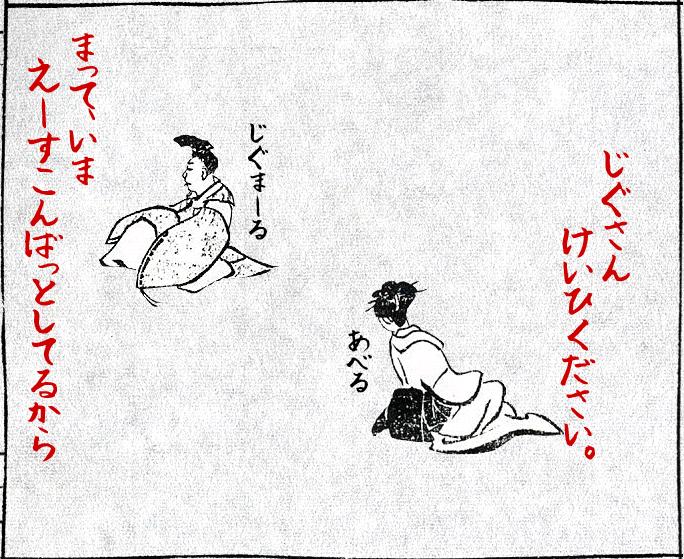 じぐさん
けいひください。
じぐまーる
あべる
まって、いま
えーすこんばっとしてるから